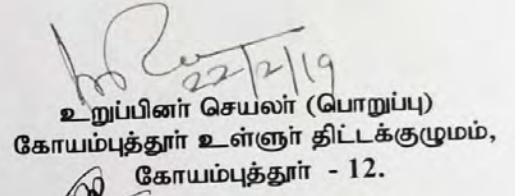 22/2/19
உறுப்பினர் செயலர் (பொறுப்பு)
கோயம்புத்தூர் உள்ளுர் திட்டக்குழுமம்,
கோயம்புத்தூர் - 12.